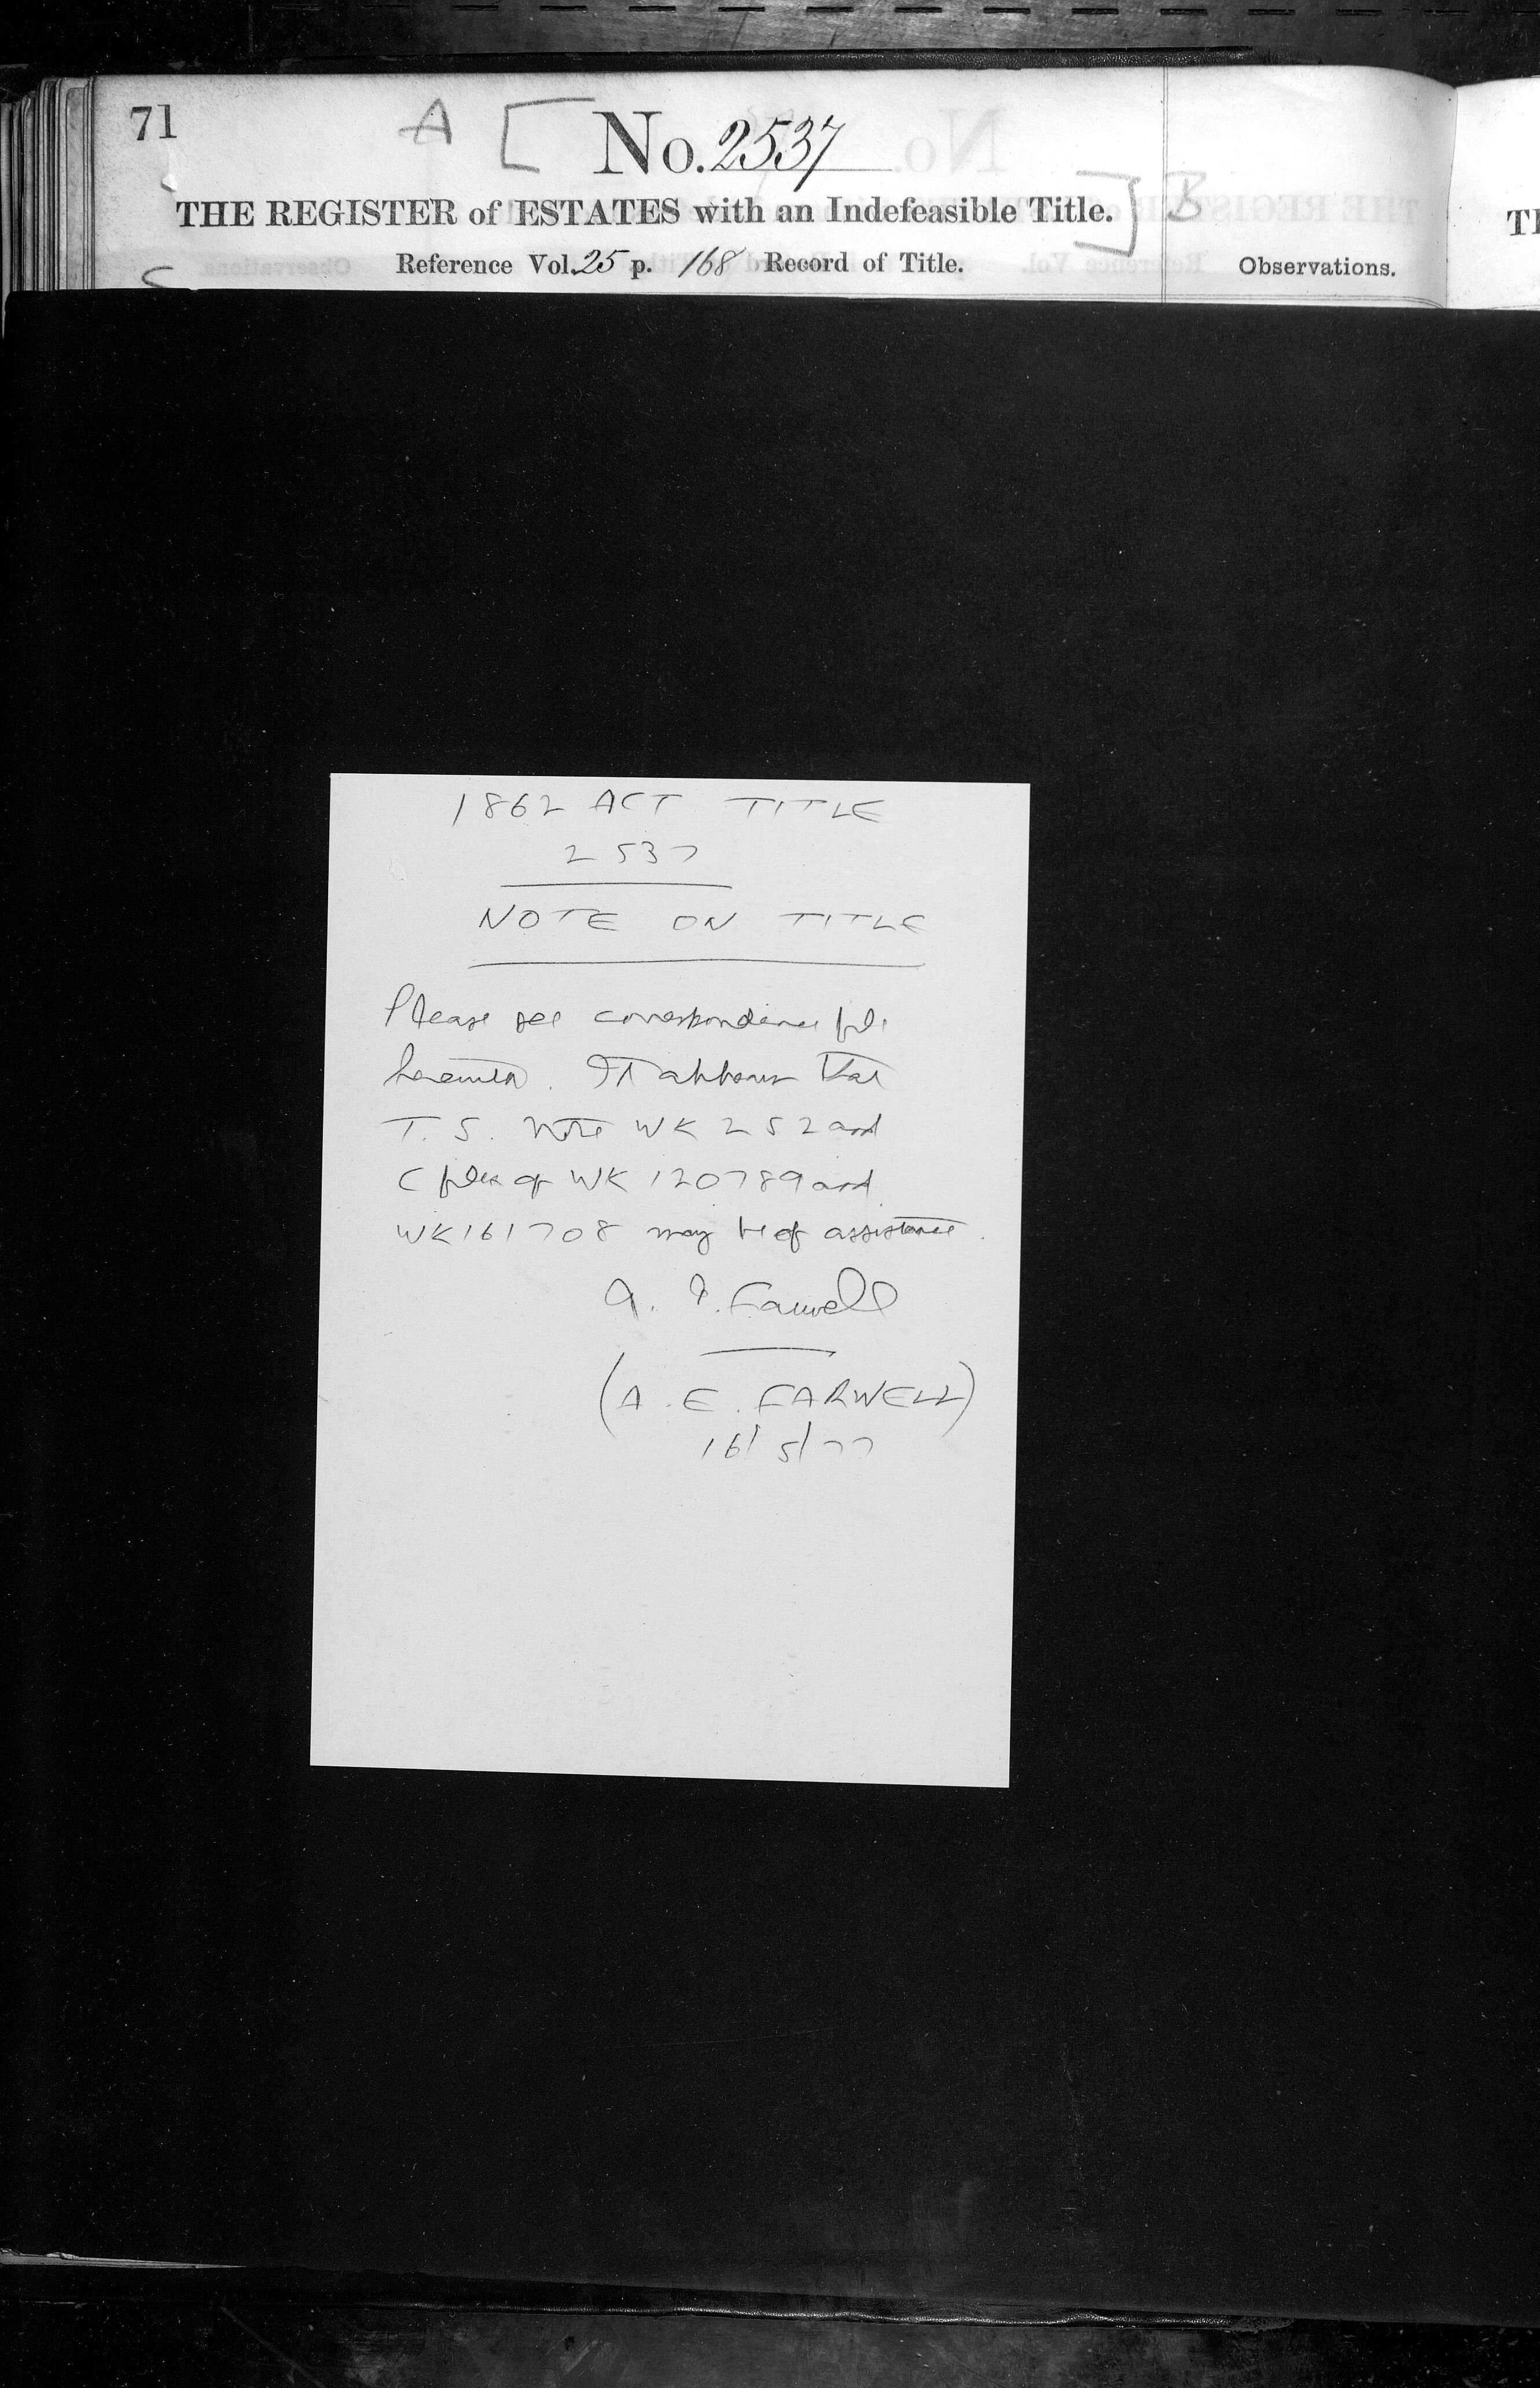 71
A [
No. 2537
THE REGISTER of ESTATES with an Indefeasible Title. ] B
Reference Vol. 25 p. 168 Record of Title.
Observations.
C
1862 ACT TITLE
2537
NOTE ON TITLE
Please see correspondence file
herewith. It appears that
T. S. note WK 252 and
C files of WK 120789 and
WK161708 may be of assistance.
A. E. Farwell
(A. E. FARWELL)
16/5/77